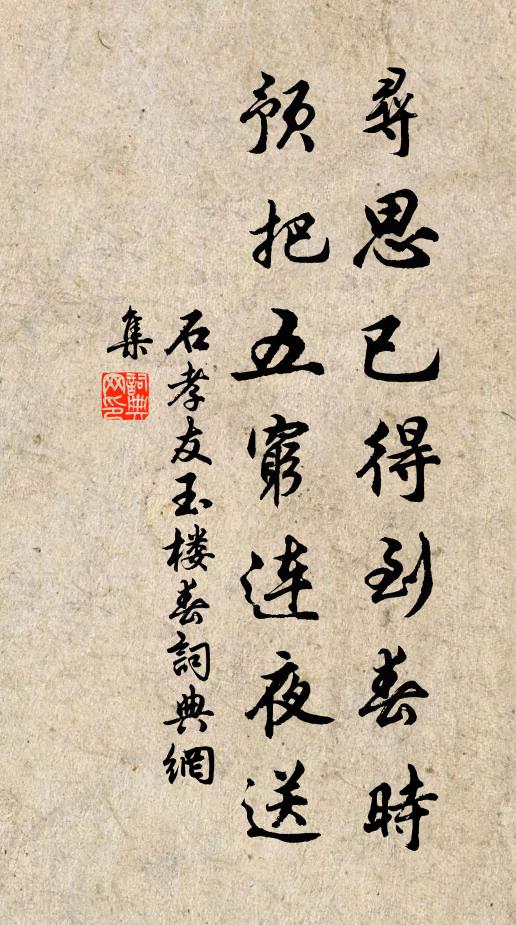 尋思已得到春時
預把五窮連夜送
石孝友玉楼春詞典網
集
詞典
网印